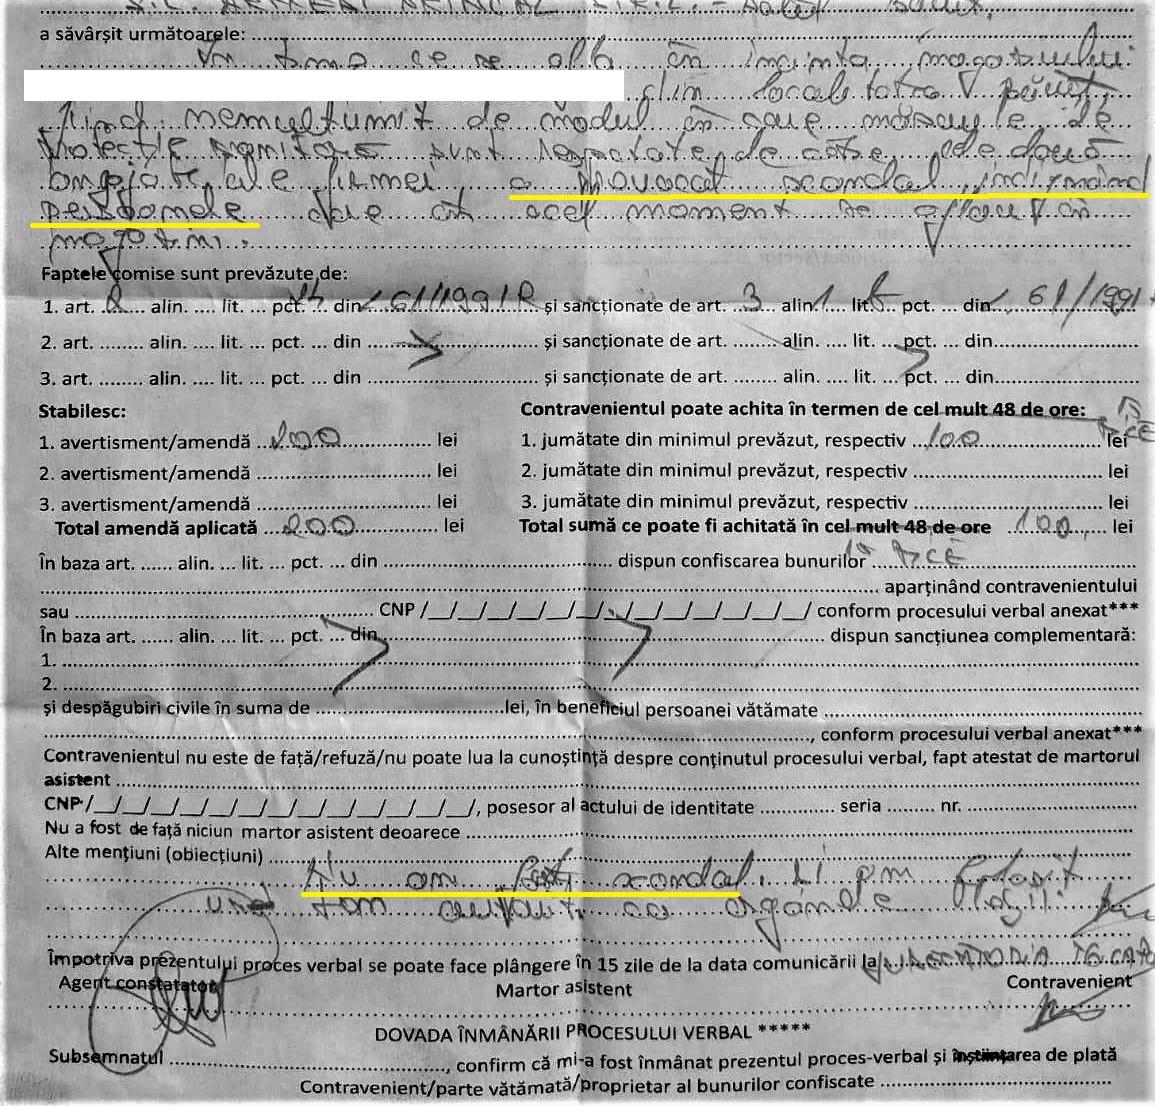 a săvârșit următoarele:
În timp ce se afla în incinta magazinului
din localitatea
fiind nemulțumit de modul în care măsurile de
protecție sanitară sunt respectate de către cele două
angajate ale firmei, a provocat scandal, indignând
persoanele care în acel moment se aflau în
magazin.
Faptele comise sunt prevăzute de:
1. art. 2 alin. .... lit. ... pct. din L 61/1991 R și sancționate de art. 3 alin 1 lit b pct. ... din L 61/1991
2. art. ........ alin. .... lit. ... pct. ... din .................... și sancționate de art. ........ alin. .... lit. ... pct. ... din....................
3. art. ........ alin. .... lit. ... pct. ... din .................... și sancționate de art. ........ alin. .... lit. ... pct. ... din....................
Stabilesc: Contravenientul poate achita în termen de cel mult 48 de ore:
1. avertisment/amendă ...200... lei 1. jumătate din minimul prevăzut, respectiv ...100... lei
2. avertisment/amendă .................... lei 2. jumătate din minimul prevăzut, respectiv .................... lei
3. avertisment/amendă .................... lei 3. jumătate din minimul prevăzut, respectiv .................... lei
Total amendă aplicată ...200... lei Total sumă ce poate fi achitată în cel mult 48 de ore ...100... lei
În baza art. ...... alin. ... lit. ... pct. ... din .................... dispun confiscarea bunurilor ....................
.................... aparținând contravenientului
sau .................... CNP /__/__/__/__/__/__/__/__/__/__/__/__/__/ conform procesului verbal anexat***
În baza art. ...... alin. ... lit. ... pct. ... din .................... dispun sancțiunea complementară:
1. ....................
2. ....................
și despăgubiri civile în suma de ....................lei, în beneficiul persoanei vătămate ....................
...................., conform procesului verbal anexat***
Contravenientul nu este de față/refuză/nu poate lua la cunoștință despre conținutul procesului verbal, fapt atestat de martorul
asistent ....................
CNP/__/__/__/__/__/__/__/__/__/__/__/__/__/, posesor al actului de identitate ............ seria ......... nr. ....................
Nu a fost de față niciun martor asistent deoarece ....................
Alte mențiuni (obiecțiuni) ....................
Nu am făcut scandal. Li am
un ton ca organele legii
Împotriva prezentului proces verbal se poate face plângere în 15 zile de la data comunicării la JUDECĂTORIA
Agent constatator Martor asistent Contravenient
DOVADA ÎNMÂNĂRII PROCESULUI VERBAL *****
Subsemnatul ...................., confirm că mi-a fost înmânat prezentul proces-verbal și înștiințarea de plată
Contravenient/parte vătămată/proprietar al bunurilor confiscate ....................